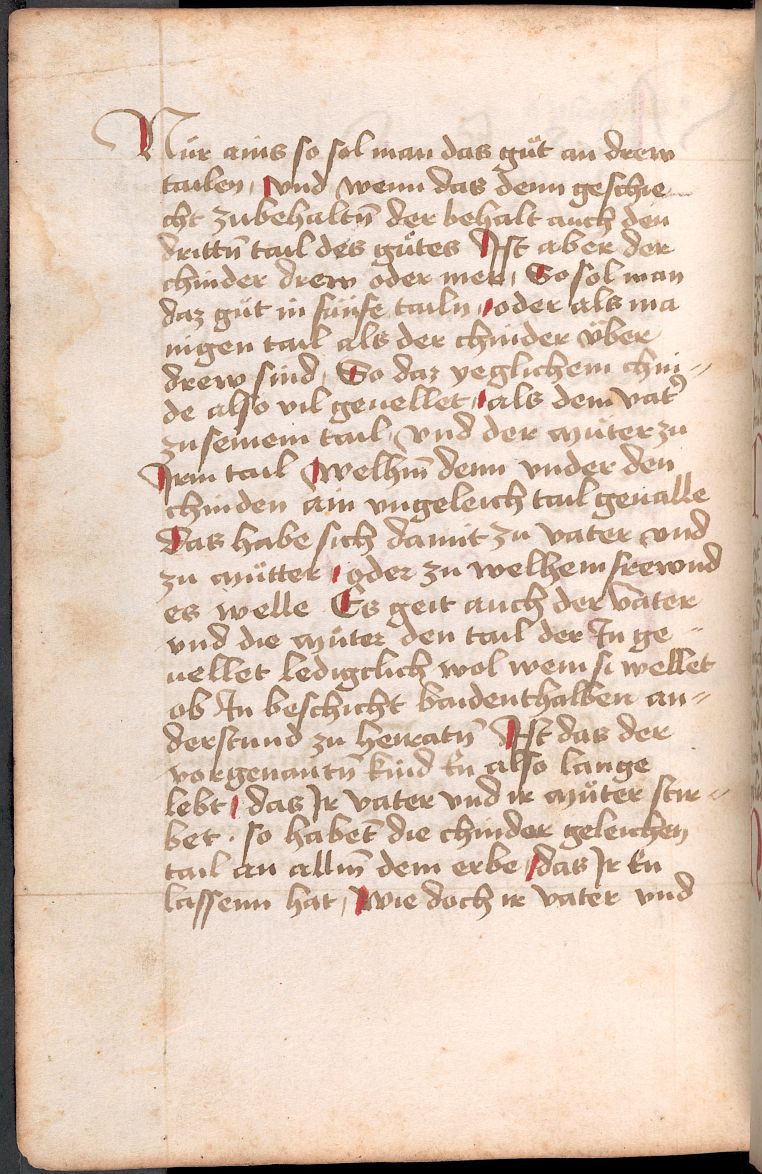 Nür ains so sol man das güt an drew
tailen / vnd wenn das denn geschie
cht zubehaltn̄ der behalt auch den
drittn̄ tail des gütes Ist aber der
chinder drew oder mer / So sol man
daz güt in fünfe tailn / oder als ma
nigen tail als der chinder über
drew sind / So daz yeglichem chin =
de also vil geuellet / als dem vat͛
zu seinem tail / vnd der müter zu
Irm tail / welhm̄ denn vnder den
chinden ain vngeleich tail geualle
Das habe sich damit zu vater vnd
zu mütter / oder zu welhem frewnd
es welle Es geit auch der vater
vnd die müter den tail der In ge =
uellet ledigclich wol wem si wellet
ob In beschicht baidenthalben an =
derstund zu heyratn̄ Ist das der
vorgenantn̄ kind En also lange
lebt / das Ir vater vnd ir müter stir =
bet · so habet̄ die chinder geleichen
tail an allm̄ dem erbe / das Ir En
lassenn hat / wie doch ir vater vnd